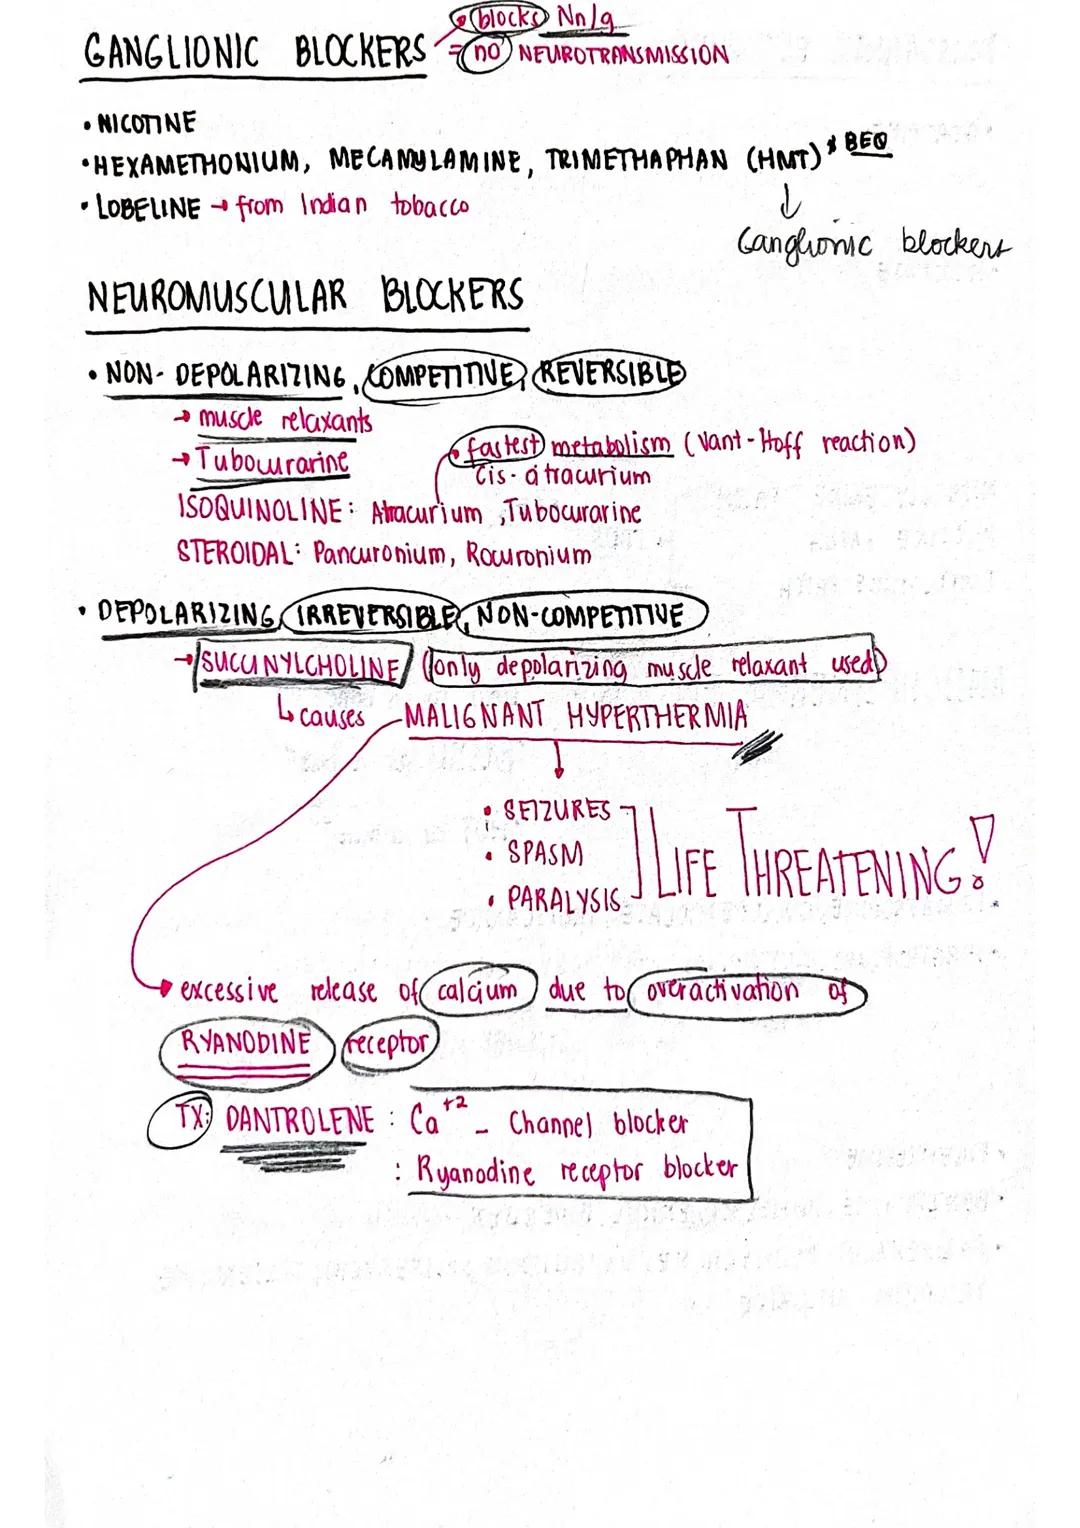 GANGLIONIC BLOCKERS → blocks Nn/g
= no NEUROTRANSMISSION
• NICOTINE
• HEXAMETHONIUM, MECAMYLAMINE, TRIMETHAPHAN (HMT) * BEQ
• LOBELINE → from Indian tobacco
↓
Ganglionic blockers
NEUROMUSCULAR BLOCKERS
• NON-DEPOLARIZING, COMPETITIVE, REVERSIBLE
→ muscle relaxants
→ Tubocurarine
fastest metabolism (Vant-Hoff reaction)
Cis-atracurium
ISOQUINOLINE: Atracurium, Tubocurarine
STEROIDAL: Pancuronium, Rocuronium
• DEPOLARIZING, IRREVERSIBLE, NON-COMPETITIVE
→ SUCCINYLCHOLINE (only depolarizing muscle relaxant used)
↳ causes MALIGNANT HYPERTHERMIA
↓
• SEIZURES
• SPASM
• PARALYSIS
LIFE THREATENING!
excessive release of calcium due to overactivation of
RYANODINE receptor
TX: DANTROLENE : Ca+2 - Channel blocker
: Ryanodine receptor blocker